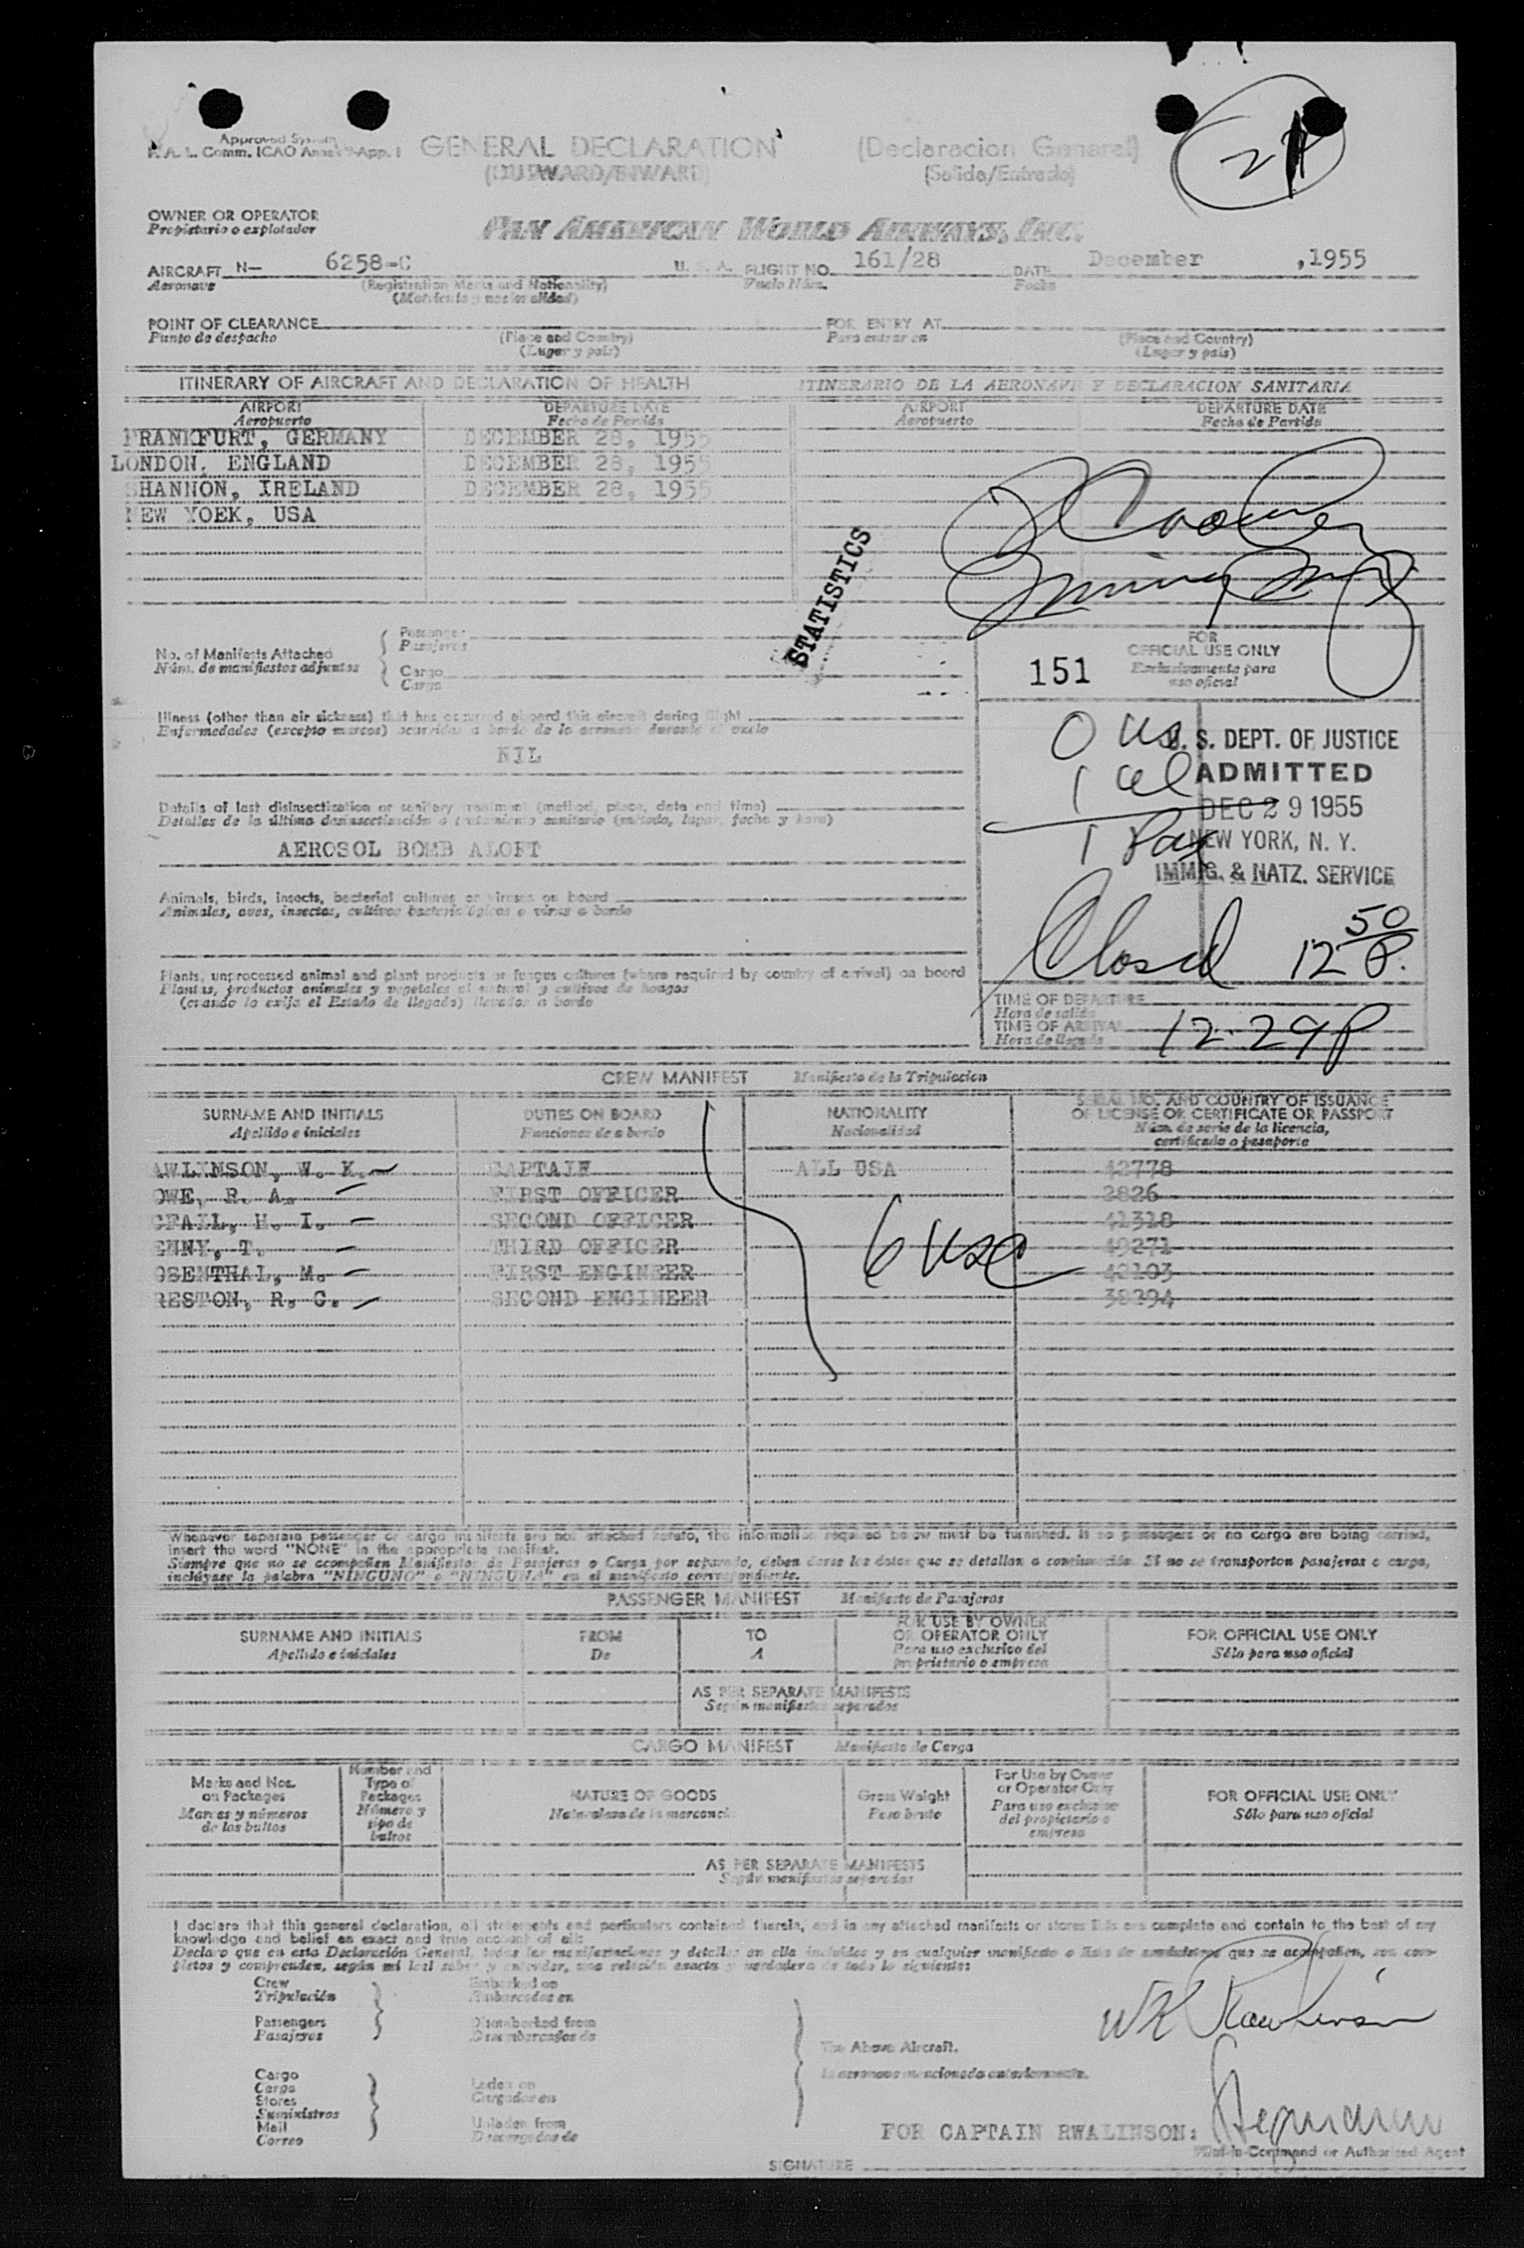 Approved System
P. A. L. Comm. ICAO Annex 9-App. 1
GENERAL DECLARATION
(Declaracion General)
(OUTWARD/INWARD)
(Salida/Entrada)
OWNER OR OPERATOR
Propietario o explotador
PAN AMERICAN WORLD AIRWAYS, INC.
AIRCRAFT N— 6258-C U. S. A. FLIGHT NO. 161/28 DATE December ,1955
Aeronave (Registration Marks and Nationality) Vuelo Núm. Fecha
(Matrícula y nacionalidad)
POINT OF CLEARANCE FOR ENTRY AT
Punto de despacho (Place and Country) Para entrar en (Place and Country)
(Lugar y país) (Lugar y país)
ITINERARY OF AIRCRAFT AND DECLARATION OF HEALTH ITINERARIO DE LA AERONAVE Y DECLARACION SANITARIA
AIRPORT DEPARTURE DATE AIRPORT DEPARTURE DATE
Aeropuerto Fecha de Partida Aeropuerto Fecha de Partida
FRANKFURT, GERMANY DECEMBER 28, 1955
LONDON, ENGLAND DECEMBER 28, 1955
SHANNON, IRELAND DECEMBER 28, 1955
NEW YOEK, USA
STATISTICS
No. of Manifests Attached
Núm. de manifiestos adjuntos
Passenger
Pasajeros
Cargo
Carga
FOR
OFFICIAL USE ONLY
Exclusivamente para
uso oficial
151
Illness (other than air sickness) that has occurred aboard this aircraft during flight
Enfermedades (excepto mareos) ocurridas a bordo de la aeronave durante el vuelo
NIL
Details of last disinsectization or sanitary treatment (method, place, date and time)
Detalles de la última desinsectización o tratamiento sanitario (método, lugar, fecha y hora)
AEROSOL BOMB ALOFT
Animals, birds, insects, bacterial cultures or viruses on board
Animales, aves, insectos, cultivos bacteriológicos o virus a bordo
Plants, unprocessed animal and plant products or fungus cultures (where required by country of arrival) on board
Plantas, productos animales y vegetales al natural y cultivos de hongos
(cuando lo exija el Estado de llegada) llevados a bordo
0 usc
1 al
1 Pax
U. S. DEPT. OF JUSTICE
ADMITTED
DEC 29 1955
NEW YORK, N. Y.
IMMIG. & NATZ. SERVICE
Closed 12 50 P.
TIME OF DEPARTURE
Hora de salida
TIME OF ARRIVAL 12-29P
Hora de llegada
CREW MANIFEST Manifiesto de la Tripulacion
SURNAME AND INITIALS DUTIES ON BOARD NATIONALITY SERIAL NO. AND COUNTRY OF ISSUANCE
OF LICENSE OR CERTIFICATE OR PASSPORT
Apellido e iniciales Funciones de a bordo Nacionalidad Núm. de serie de la licencia,
certificado o pasaporte
AWLINSON, W. K. CAPTAIN ALL USA 42778
OWE, R. A. FIRST OFFICER 2826
CFAIL, H. I. SECOND OFFICER 41318
ENNY, T. THIRD OFFICER 49271
OSENTHAL, M. FIRST ENGINEER 42103
RESTON, R. G. SECOND ENGINEER 38294
6 usc
Whenever separate passenger or cargo manifests are not attached hereto, the information required below must be furnished. If no passengers or no cargo are being carried,
insert the word "NONE" in the appropriate manifest.
Siempre que no se acompañen Manifiestos de Pasajeros o Carga por separado, deben darse los datos que se detallan a continuación. Si no se transportan pasajeros o carga,
inclúyase la palabra "NINGUNO" o "NINGUNA" en el manifiesto correspondiente.
PASSENGER MANIFEST Manifiesto de Pasajeros
SURNAME AND INITIALS FROM TO FOR USE BY OWNER
OR OPERATOR ONLY FOR OFFICIAL USE ONLY
Apellido e iniciales De A Para uso exclusivo del
propietario o empresa Sólo para uso oficial
AS PER SEPARATE MANIFESTS
Según manifiestos separados
CARGO MANIFEST Manifiesto de Carga
Marks and Nos.
on Packages
Marcas y números
de los bultos
Number and
Type of
Packages
Número y
tipo de
bultos
NATURE OF GOODS
Naturaleza de la mercancía
Gross Weight
Peso bruto
For Use by Owner
or Operator Only
Para uso exclusivo
del propietario o
empresa
FOR OFFICIAL USE ONLY
Sólo para uso oficial
AS PER SEPARATE MANIFESTS
Según manifiestos separados
I declare that this general declaration, all statements and particulars contained therein, and in any attached manifests or stores lists are complete and contain to the best of my
knowledge and belief an exact and true account of all:
Declaro que en esta Declaración General, todas las manifestaciones y detalles en ella incluidos y en cualquier manifiesto o lista de suministros que se acompañen, son com-
pletos y comprenden, según mi leal saber y entender, una relación exacta y verdadera de todo lo siguiente:
Crew
Tripulación
Passengers
Pasajeros
Embarked on
Embarcados en
Disembarked from
Desembarcados de
Cargo
Carga
Stores
Suministros
Mail
Correo
Laden on
Cargados en
Unladen from
Descargados de
The Above Aircraft.
La aeronave mencionada anteriormente.
WK Rawlinson
FOR CAPTAIN RWALINSON:
Pilot-in-Command or Authorized Agent
SIGNATURE